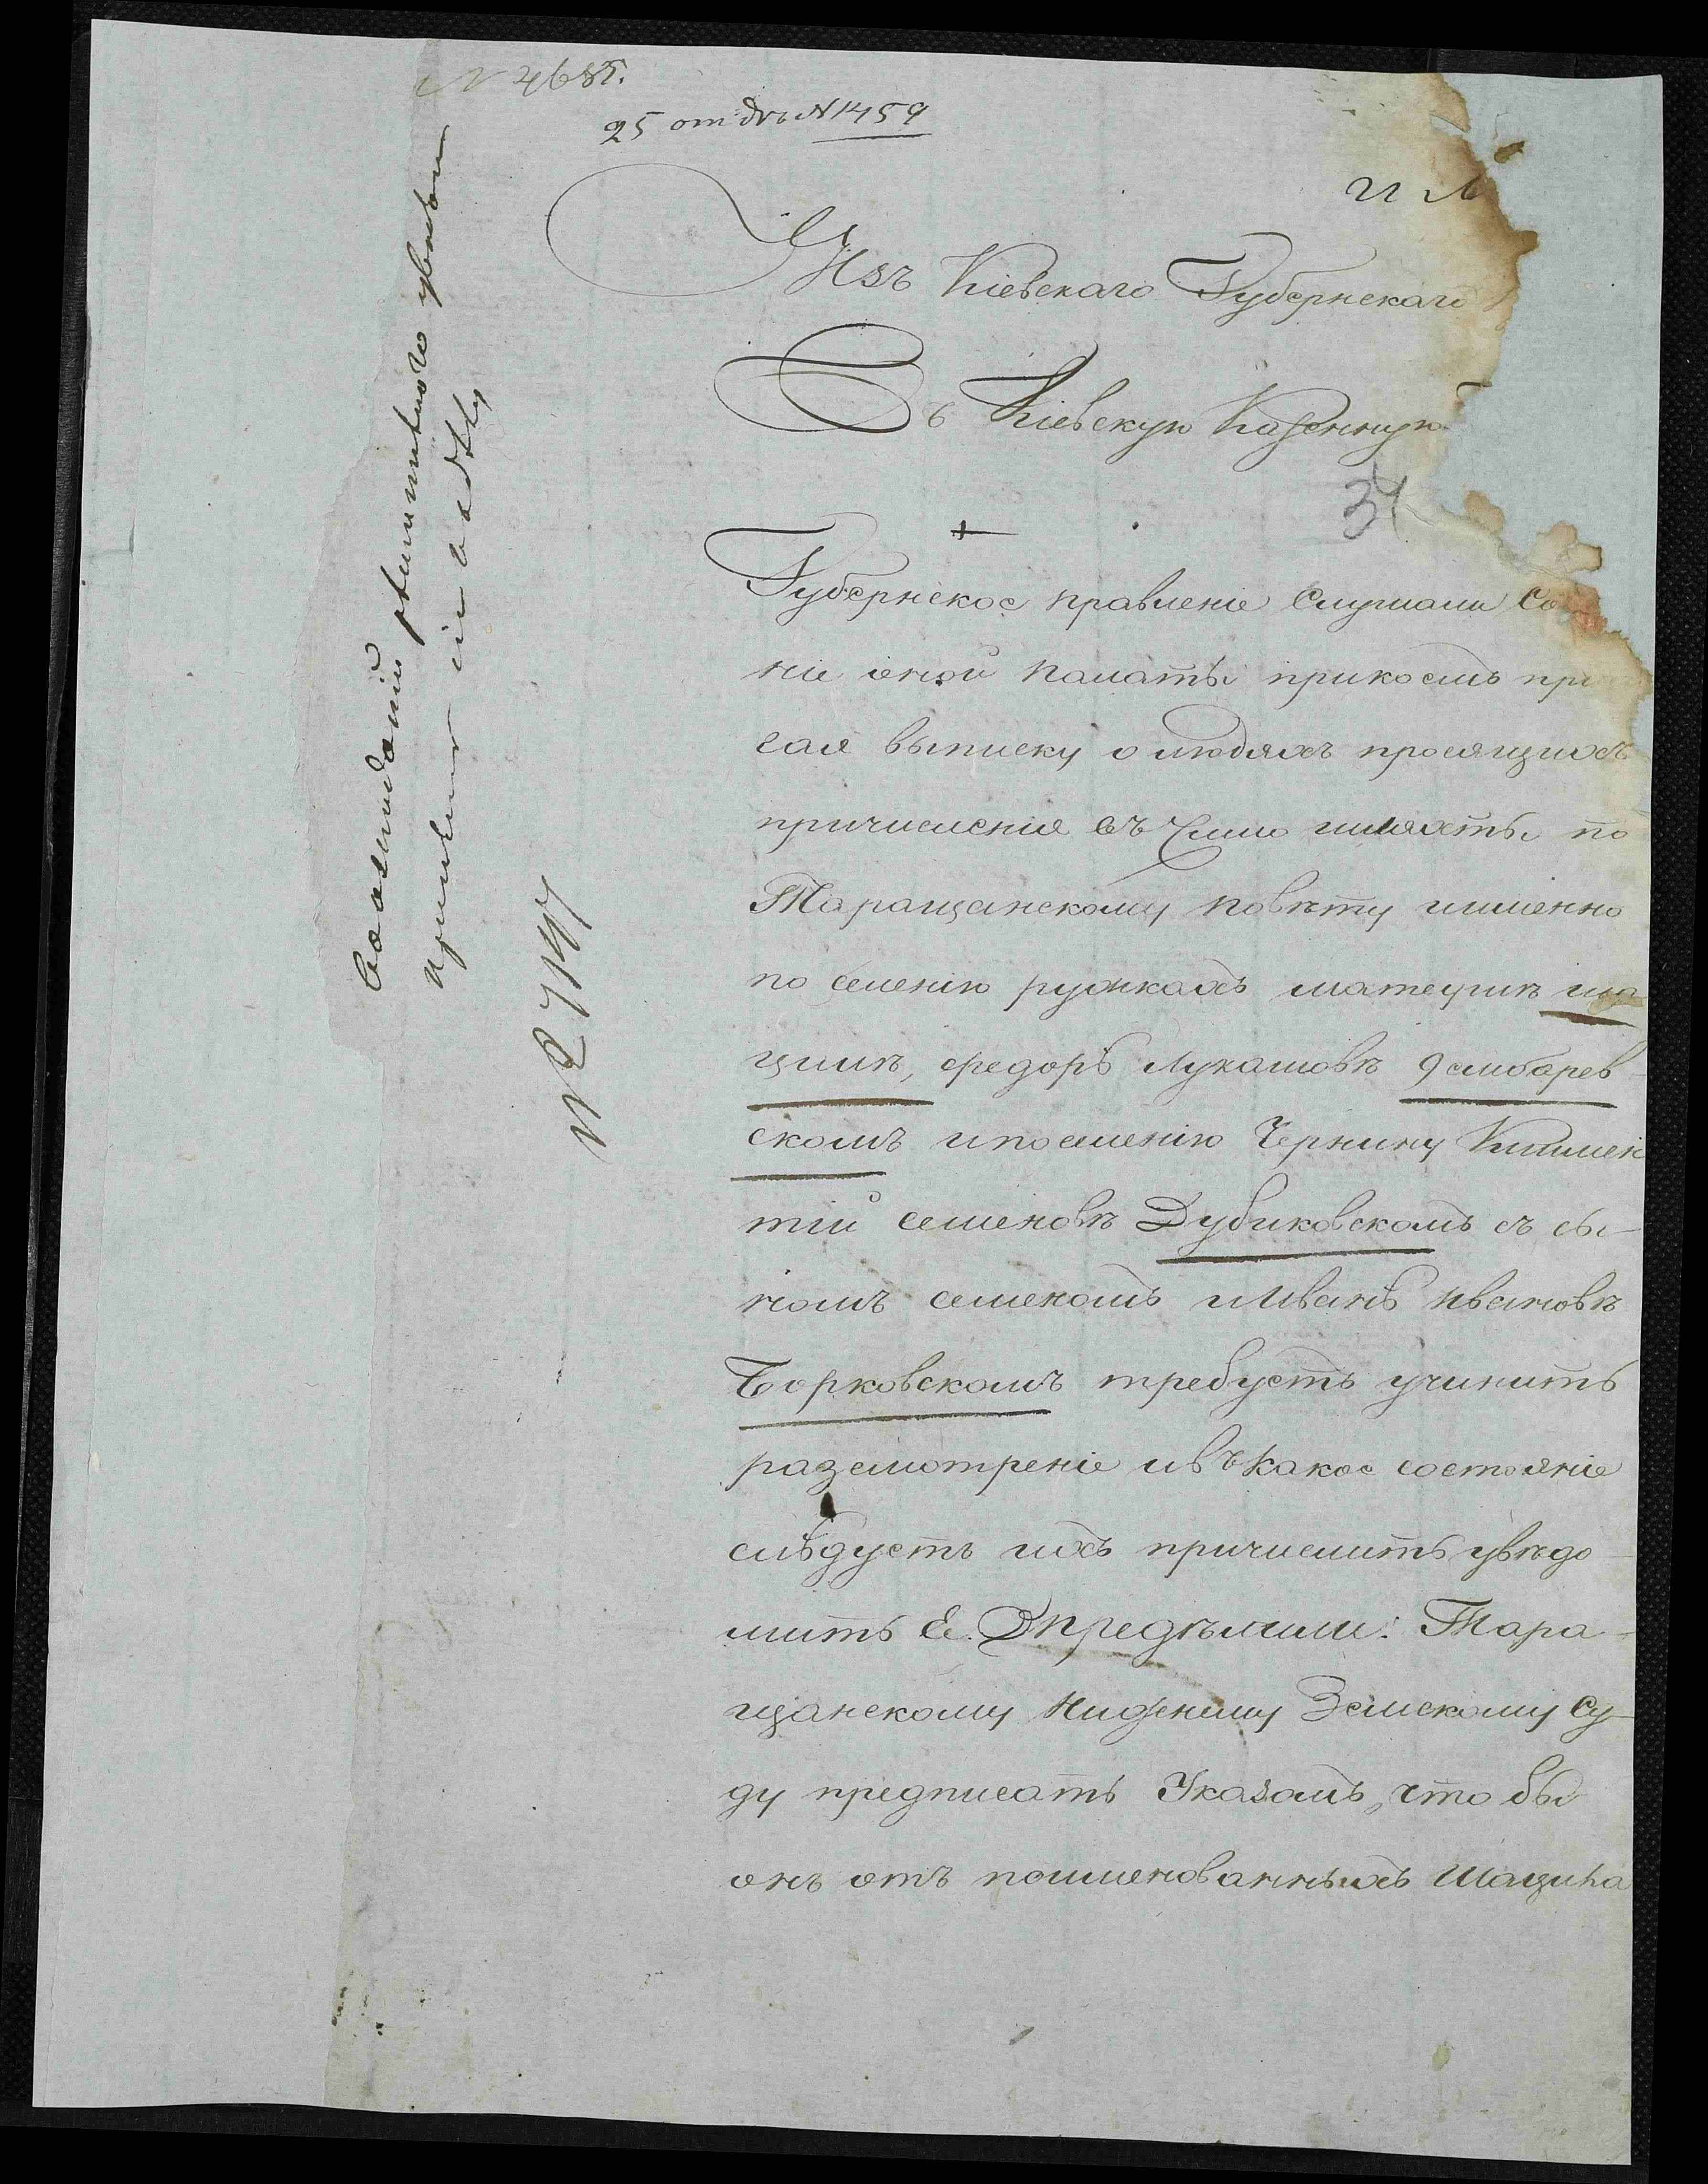 25 отдъ N 1459
Изъ Кіевскаго Губернскаго
Въ Кіевскую Казенную
34
Губернское правленіе Слушали Со
ніе оной палаты прикоемъ при
лая выписку о людяхъ просящихъ
причисленія въ Число шляхты по
Таращанскому повѣту именно
по селенію ружкахъ матеушѣ ша
цилѣ, федорѣ Лукашовѣ
скомъ ипоселенію Чернину
тій семеновѣ Дубиковскомъ съ сы-
номъ семеномъ иИванѣ Ивановѣ
Борковскомъ требуетъ учинить
разсмотреніе ивъ какое состояніе
слѣдуетъ ихъ причислить увѣдо-
мить Ея. Опредѣлили: Тара-
щанскому Нижнему Земскому Су-
ду предписать Указомъ, что бы
онъ отъ поименованныхъ
N 2 7147